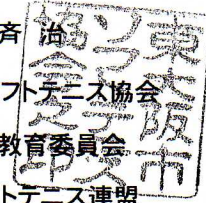 斉 治
フトテニス協会
教育委員会
トテニス連盟
東大阪市
ソフトテニス
協会之印